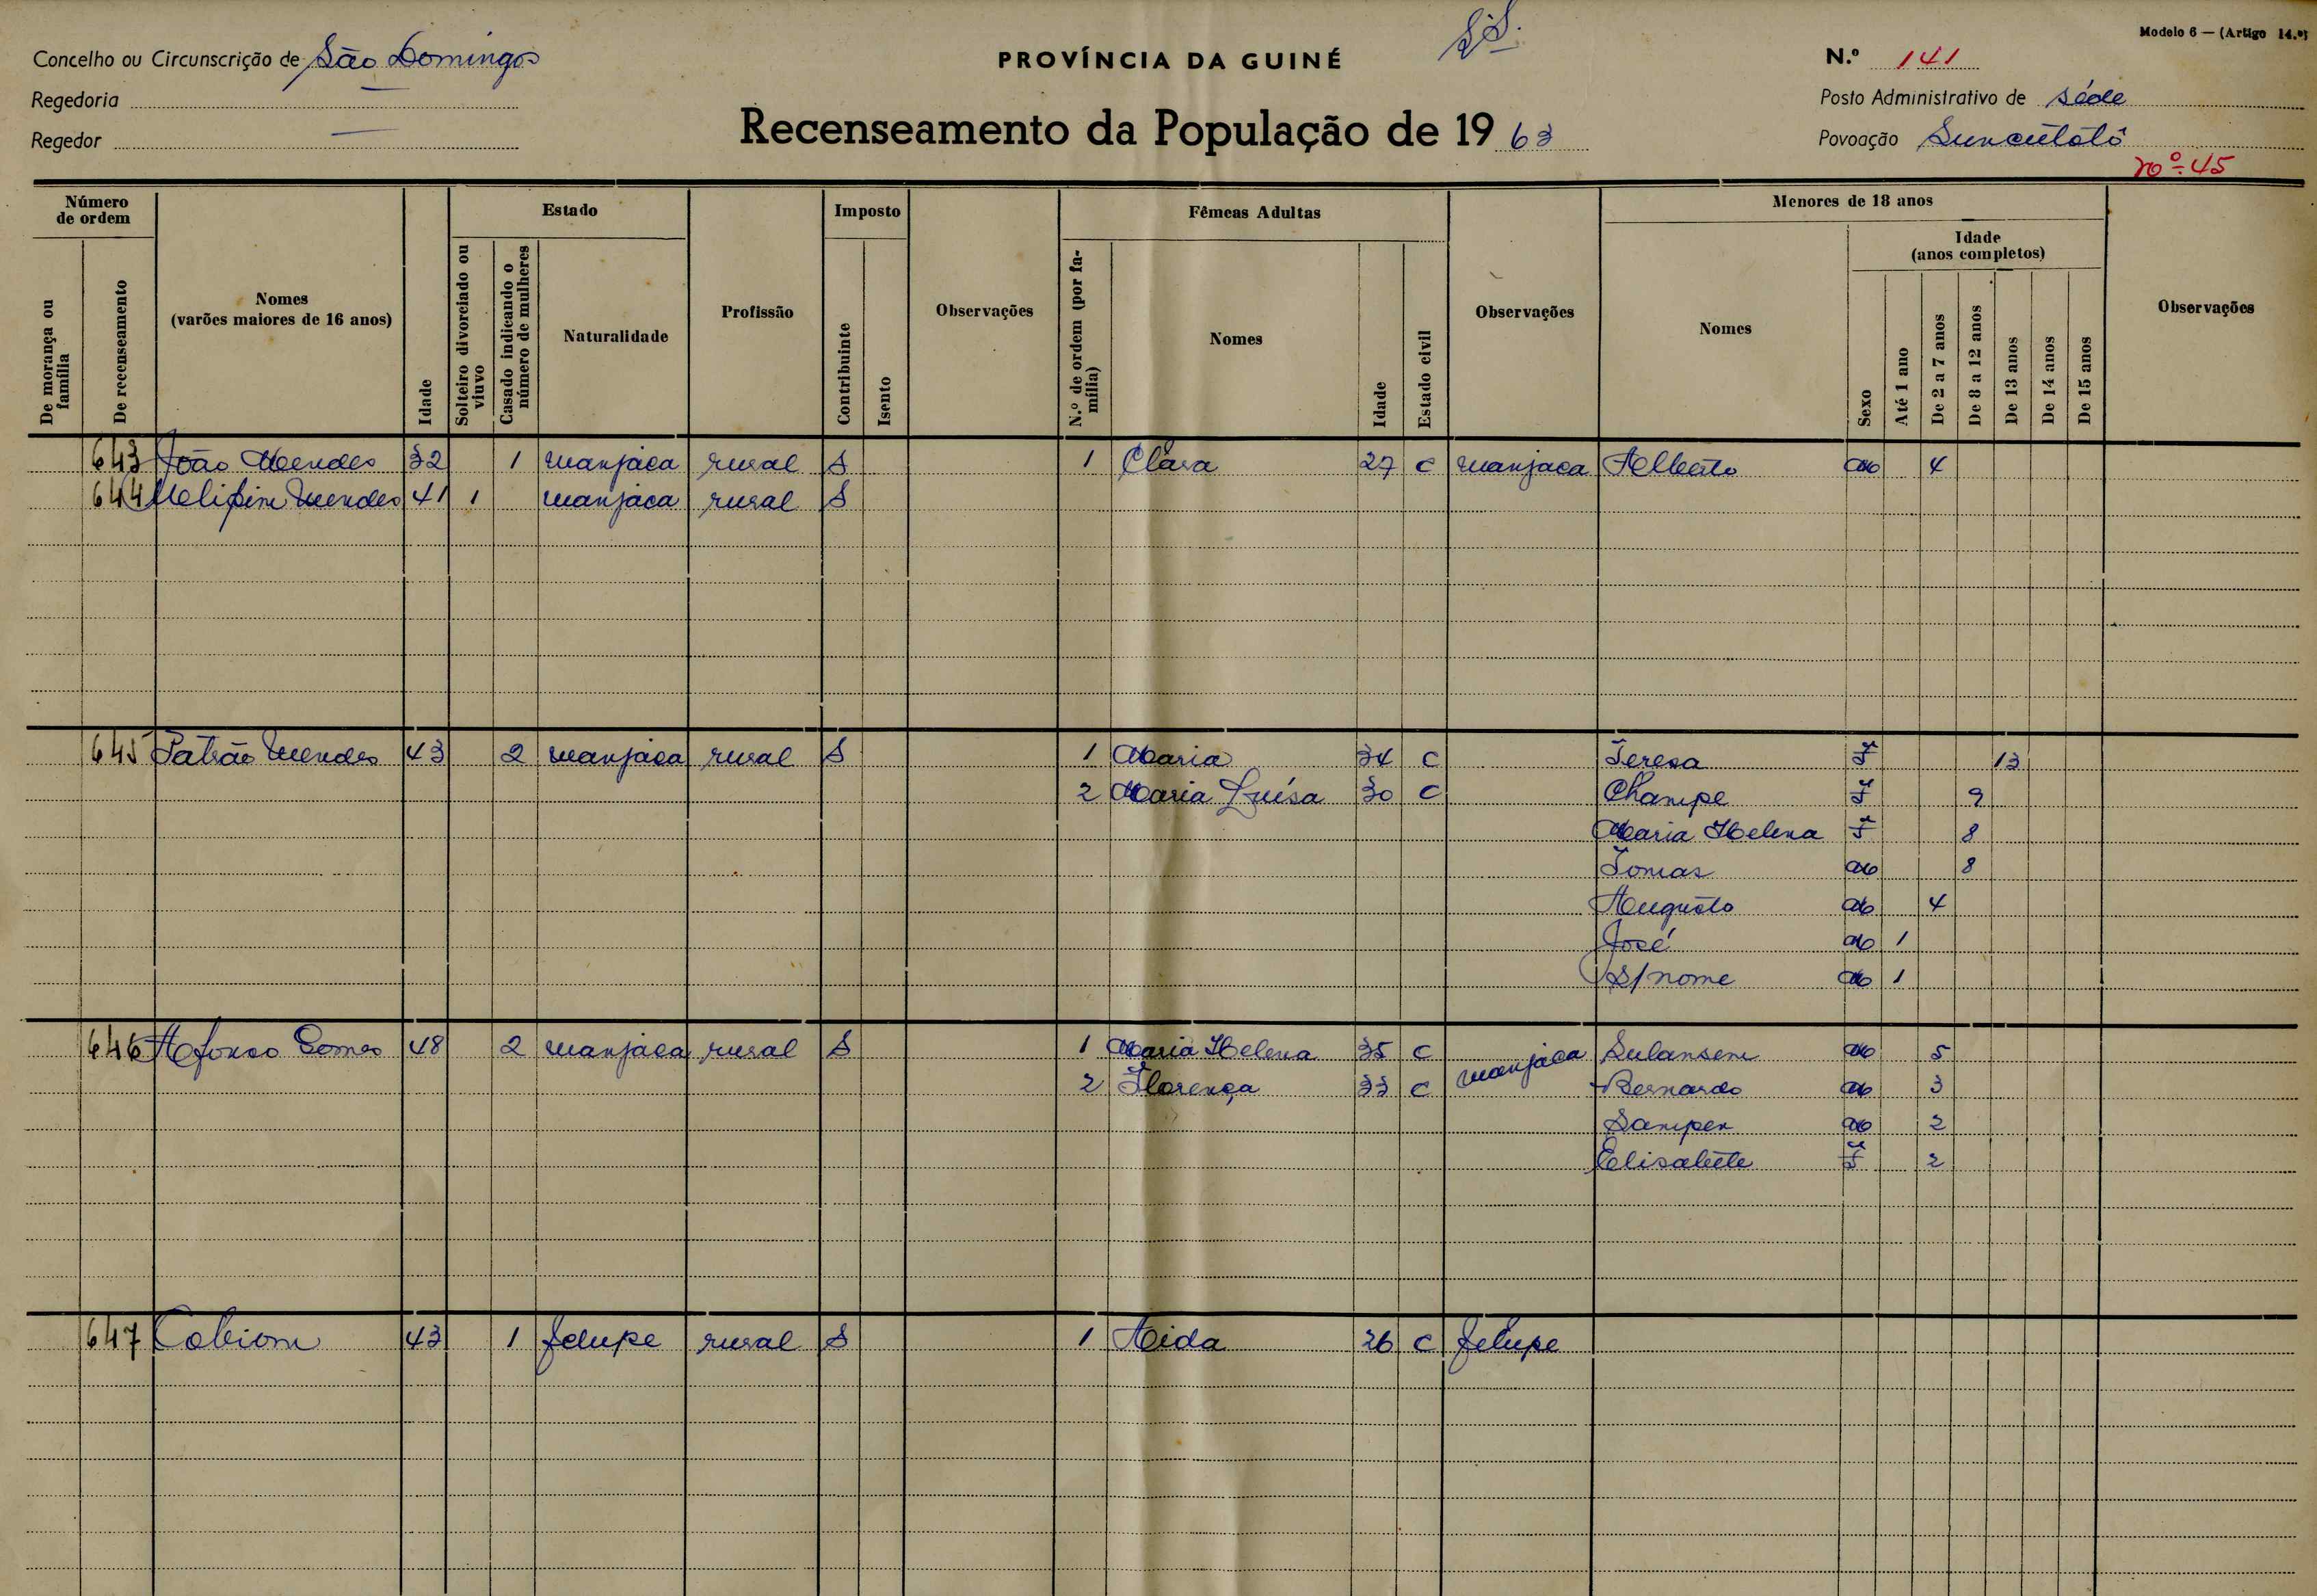 Modelo 6 — (Artigo 14.º)
Concelho ou Circunscrição de São Domingos
PROVÍNCIA DA GUINÉ
N.º 141
Regedoria —
Posto Administrativo de Séde
Regedor —
Recenseamento da População de 1963
Povoação
nº 45
Número de ordem
De morança ou família
De recenseamento
Nomes (varões maiores de 16 anos)
Idade
Estado
Solteiro divorciado ou viuvo
Casado indicando o número de mulheres
Naturalidade
Profissão
Imposto
Contribuinte
Isento
Observações
Fêmeas Adultas
N.º de ordem (por família)
Nomes
Idade
Estado civil
Observações
Menores de 18 anos
Nomes
Idade (anos completos)
Sexo
Até 1 ano
De 2 a 7 anos
De 8 a 12 anos
De 13 anos
De 14 anos
De 15 anos
Observações
643 João Mendes 32 1 manjaca rural S 1 Clara 27 C manjaca Alberto M 4
644 Mendes 41 1 manjaca rural S
645 Patrão Mendes 43 2 manjaca rural S 1 Maria 34 C Teresa F 13
2 Maria Luísa 30 C Champe F 9
Maria Helena F 8
Tomas M 8
Augusto M 4
José M 1
S/nome M 1
646 Afonso Gomes 48 2 manjaca rural S 1 Maria Helena 35 C manjaca Sulansem M 5
2 Florença 33 C Bernardo M 3
Sampen M 2
Elisabete F 2
647 43 1 felupe rural S 1 Aida 26 C felupe